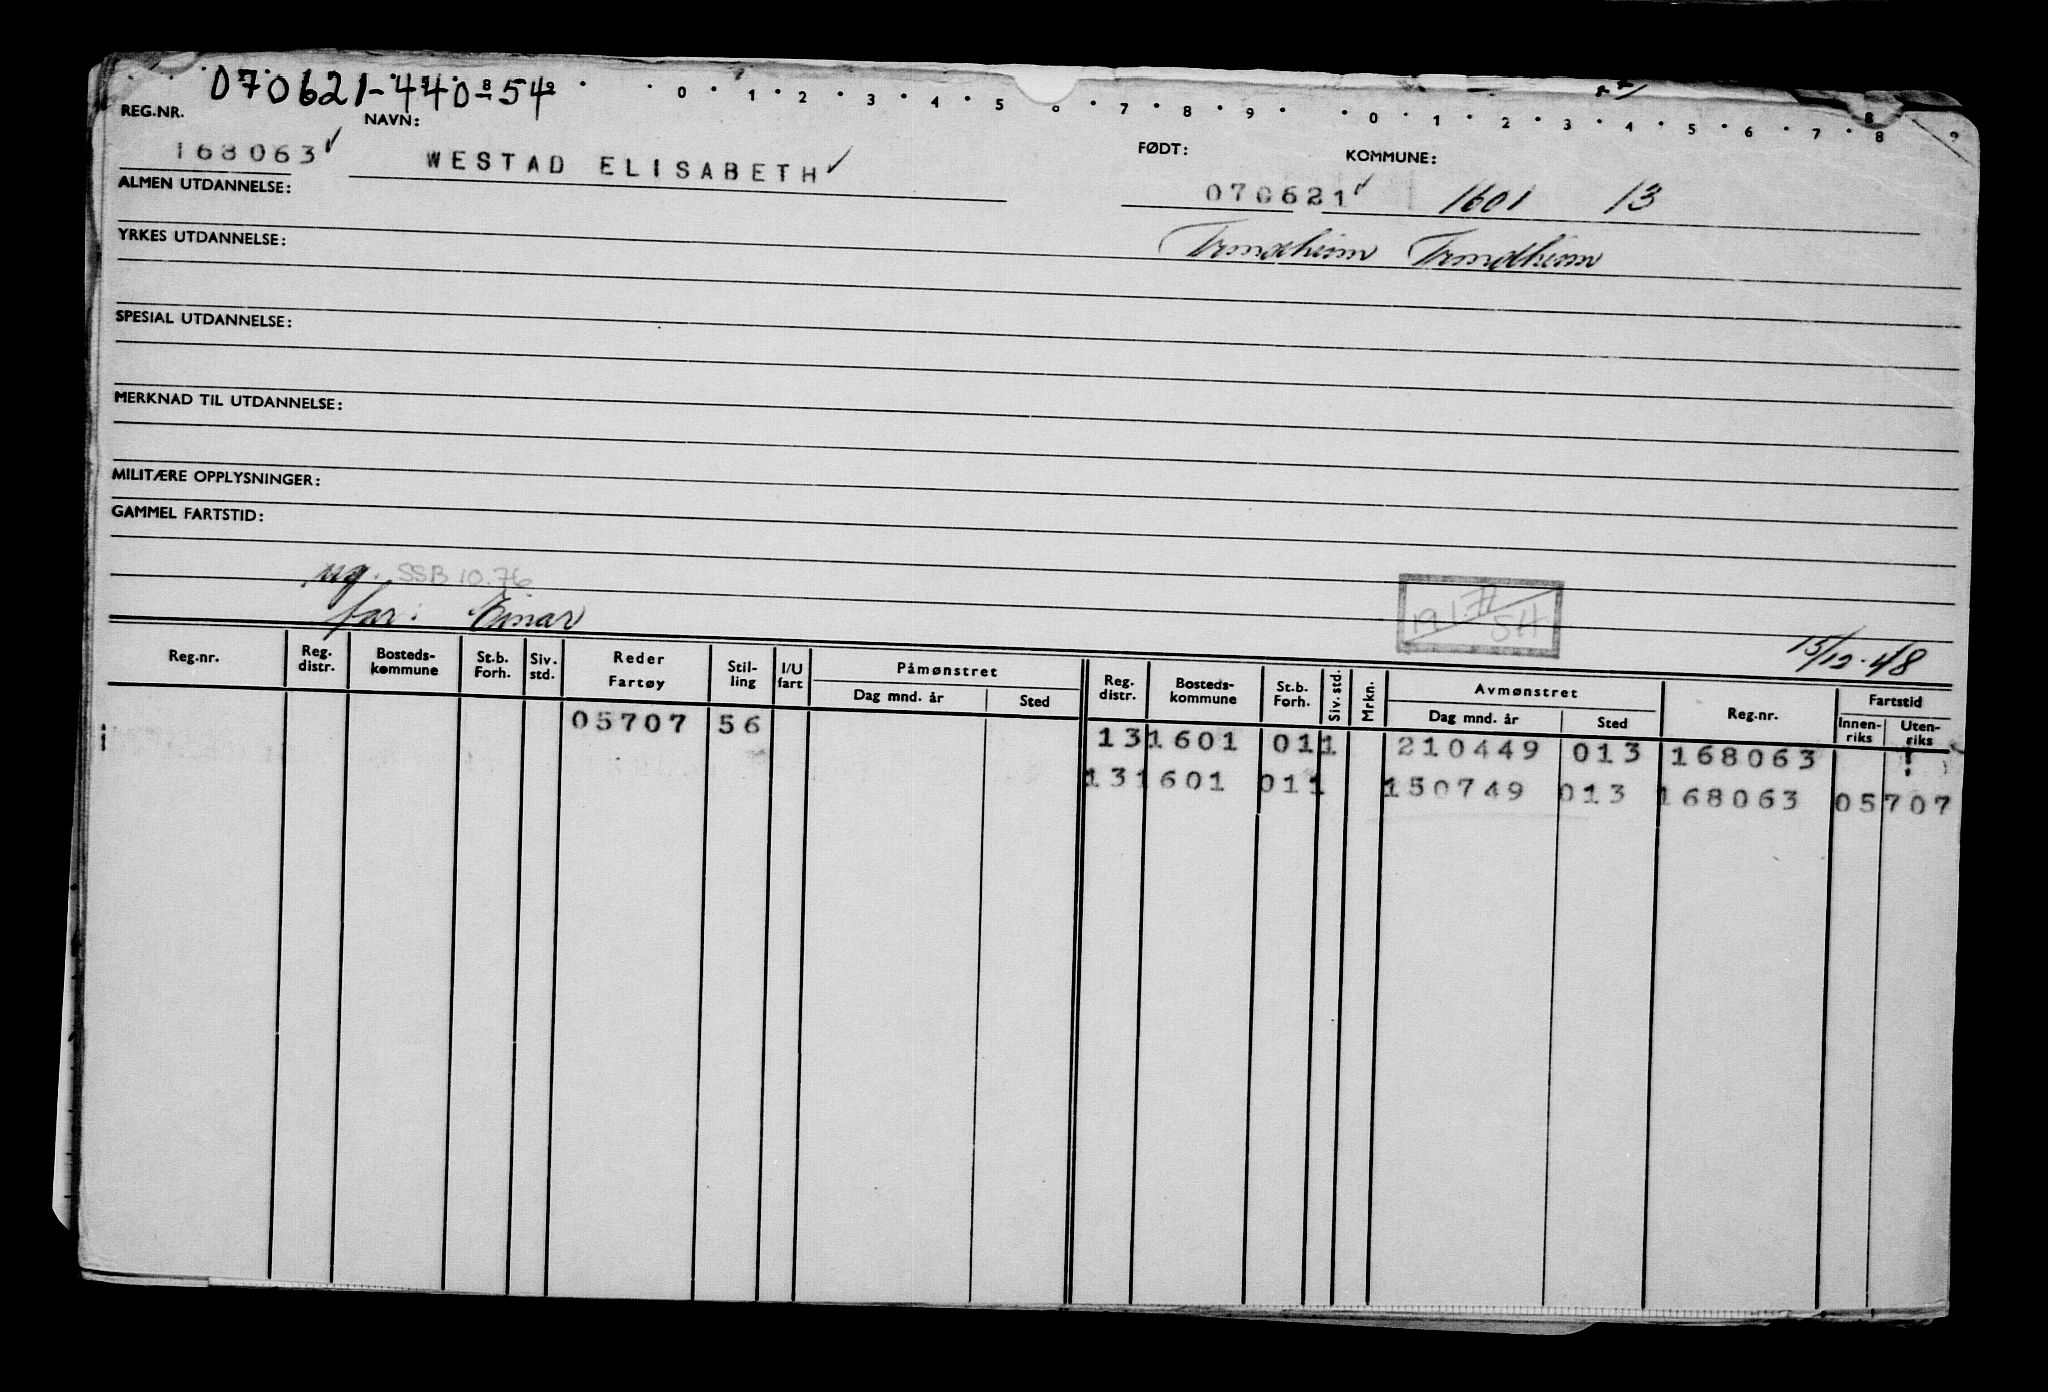 070621-440 54
0 1 2 3 4 5 6 7 8 9 0 1 2 3 4 5 6 7 8 9
REG.NR. NAVN: FØDT: KOMMUNE:
168063 WESTAD ELISABETH 070621 1601 13
ALMEN UTDANNELSE:
Trondheim Trondheim
YRKES UTDANNELSE:
SPESIAL UTDANNELSE:
MERKNAD TIL UTDANNELSE:
MILITÆRE OPPLYSNINGER:
GAMMEL FARTSTID:
ug. SSB 10.76
far: Einar
15/12.48
Reg.nr. Reg. distr. Bosteds-kommune St.b. Forh. Siv. std. Reder Fartøy Stil-ling I/U fart Påmønstret Dag mnd. år Sted Reg. distr. Bosteds-kommune St.b. Forh. Siv. std. Mrkn. Avmønstret Dag mnd. år Sted Reg.nr. Fartstid Innen-riks Uten-riks
05707 56 13 1601 01 1 210449 013 168063
13 1601 01 1 150749 013 168063 05707